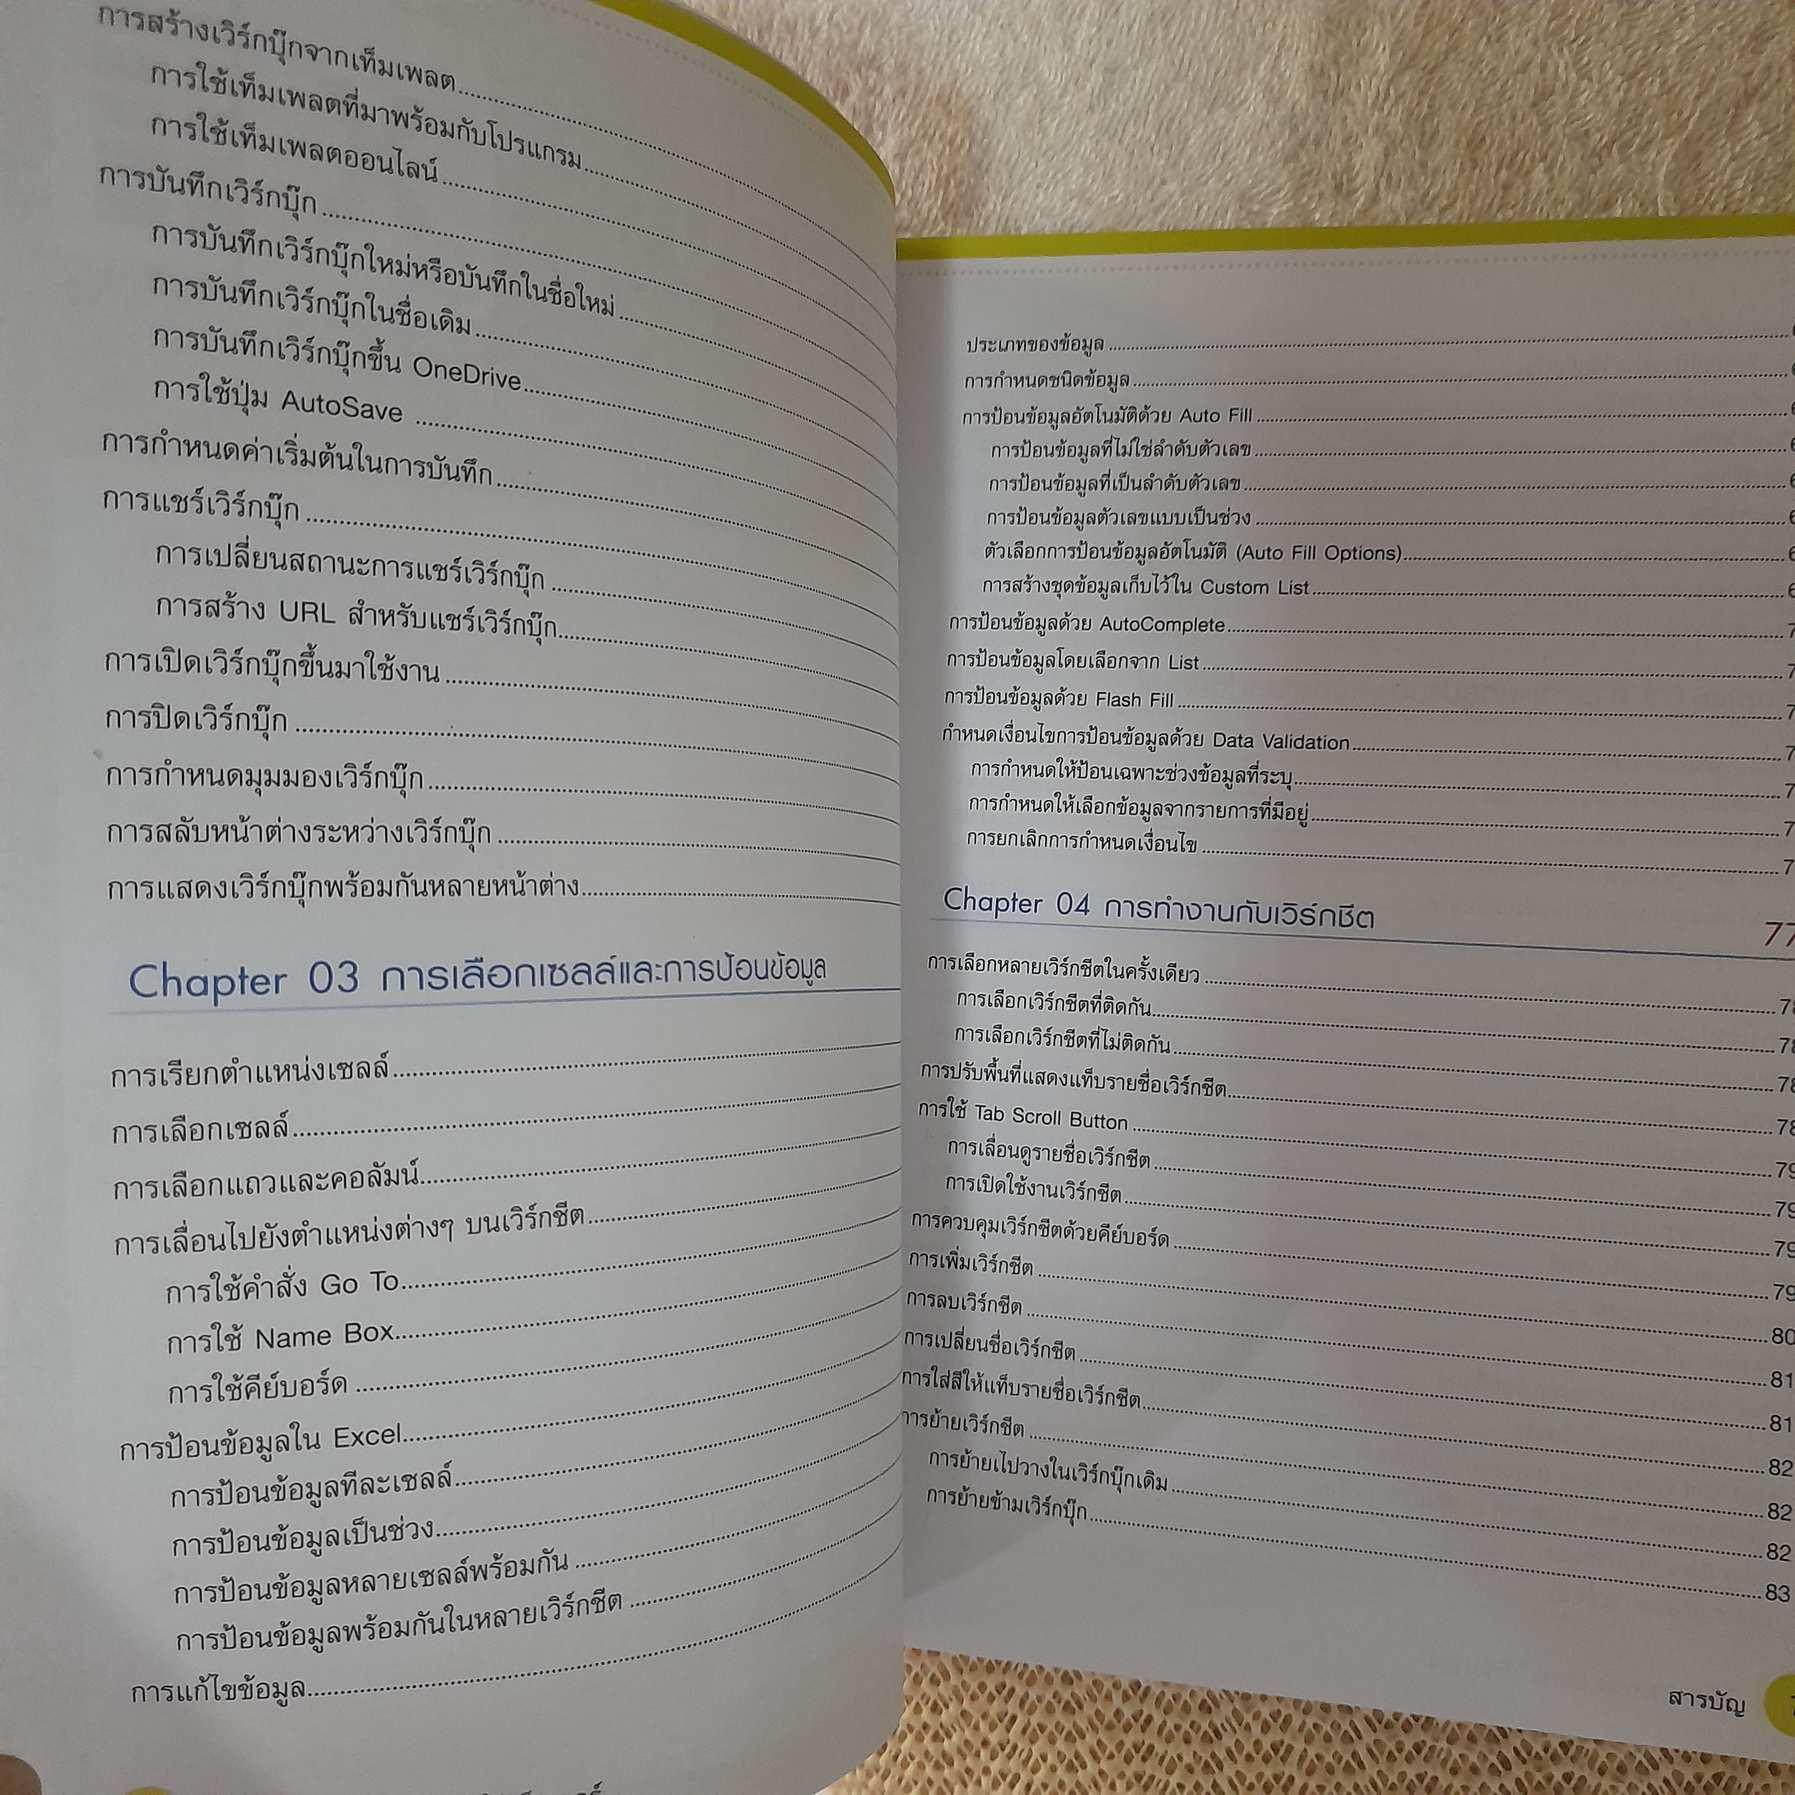 การสร้างเวิร์กบุ๊กจากเท็มเพลต
การใช้เท็มเพลตที่มาพร้อมกับโปรแกรม
การใช้เท็มเพลตออนไลน์
การบันทึกเวิร์กบุ๊ก
การบันทึกเวิร์กบุ๊กใหม่หรือบันทึกในชื่อใหม่
การบันทึกเวิร์กบุ๊กในชื่อเดิม
การบันทึกเวิร์กบุ๊กขึ้น OneDrive
การใช้ปุ่ม AutoSave
การกำหนดค่าเริ่มต้นในการบันทึก
การแชร์เวิร์กบุ๊ก
การเปลี่ยนสถานะการแชร์เวิร์กบุ๊ก
การสร้าง URL สำหรับแชร์เวิร์กบุ๊ก
การเปิดเวิร์กบุ๊กขึ้นมาใช้งาน
การปิดเวิร์กบุ๊ก
การกำหนดมุมมองเวิร์กบุ๊ก
การสลับหน้าต่างระหว่างเวิร์กบุ๊ก
การแสดงเวิร์กบุ๊กพร้อมกันหลายหน้าต่าง
Chapter 03 การเลือกเซลล์และการป้อนข้อมูล
การเรียกตำแหน่งเซลล์
การเลือกเซลล์
การเลือกแถวและคอลัมน์
การเลื่อนไปยังตำแหน่งต่างๆ บนเวิร์กชีต
การใช้คำสั่ง Go To
การใช้ Name Box
การใช้คีย์บอร์ด
การป้อนข้อมูลใน Excel
การป้อนข้อมูลทีละเซลล์
การป้อนข้อมูลเป็นช่วง
การป้อนข้อมูลหลายเซลล์พร้อมกัน
การป้อนข้อมูลพร้อมกันในหลายเวิร์กชีต
การแก้ไขข้อมูล
ประเภทของข้อมูล
การกำหนดชนิดข้อมูล
การป้อนข้อมูลอัตโนมัติด้วย Auto Fill
การป้อนข้อมูลที่ไม่ใช่ลำดับตัวเลข
การป้อนข้อมูลที่เป็นลำดับตัวเลข
การป้อนข้อมูลตัวเลขแบบเป็นช่วง
ตัวเลือกการป้อนข้อมูลอัตโนมัติ (Auto Fill Options)
การสร้างชุดข้อมูลเก็บไว้ใน Custom List
การป้อนข้อมูลด้วย AutoComplete
การป้อนข้อมูลโดยเลือกจาก List
การป้อนข้อมูลด้วย Flash Fill
กำหนดเงื่อนไขการป้อนข้อมูลด้วย Data Validation
การกำหนดให้ป้อนเฉพาะช่วงข้อมูลที่ระบุ
การกำหนดให้เลือกข้อมูลจากรายการที่มีอยู่
การยกเลิกการกำหนดเงื่อนไข
Chapter 04 การทำงานกับเวิร์กชีต 77
การเลือกหลายเวิร์กชีตในครั้งเดียว 78
การเลือกเวิร์กชีตที่ติดกัน 78
การเลือกเวิร์กชีตที่ไม่ติดกัน 78
การปรับพื้นที่แสดงแท็บรายชื่อเวิร์กชีต 78
การใช้ Tab Scroll Button 79
การเลื่อนดูรายชื่อเวิร์กชีต 79
การเปิดใช้งานเวิร์กชีต 79
การควบคุมเวิร์กชีตด้วยคีย์บอร์ด 79
การเพิ่มเวิร์กชีต 80
การลบเวิร์กชีต 81
การเปลี่ยนชื่อเวิร์กชีต 81
การใส่สีให้แท็บรายชื่อเวิร์กชีต 82
การย้ายเวิร์กชีต 82
การย้ายเไปวางในเวิร์กบุ๊กเดิม 82
การย้ายข้ามเวิร์กบุ๊ก 83
สารบัญ